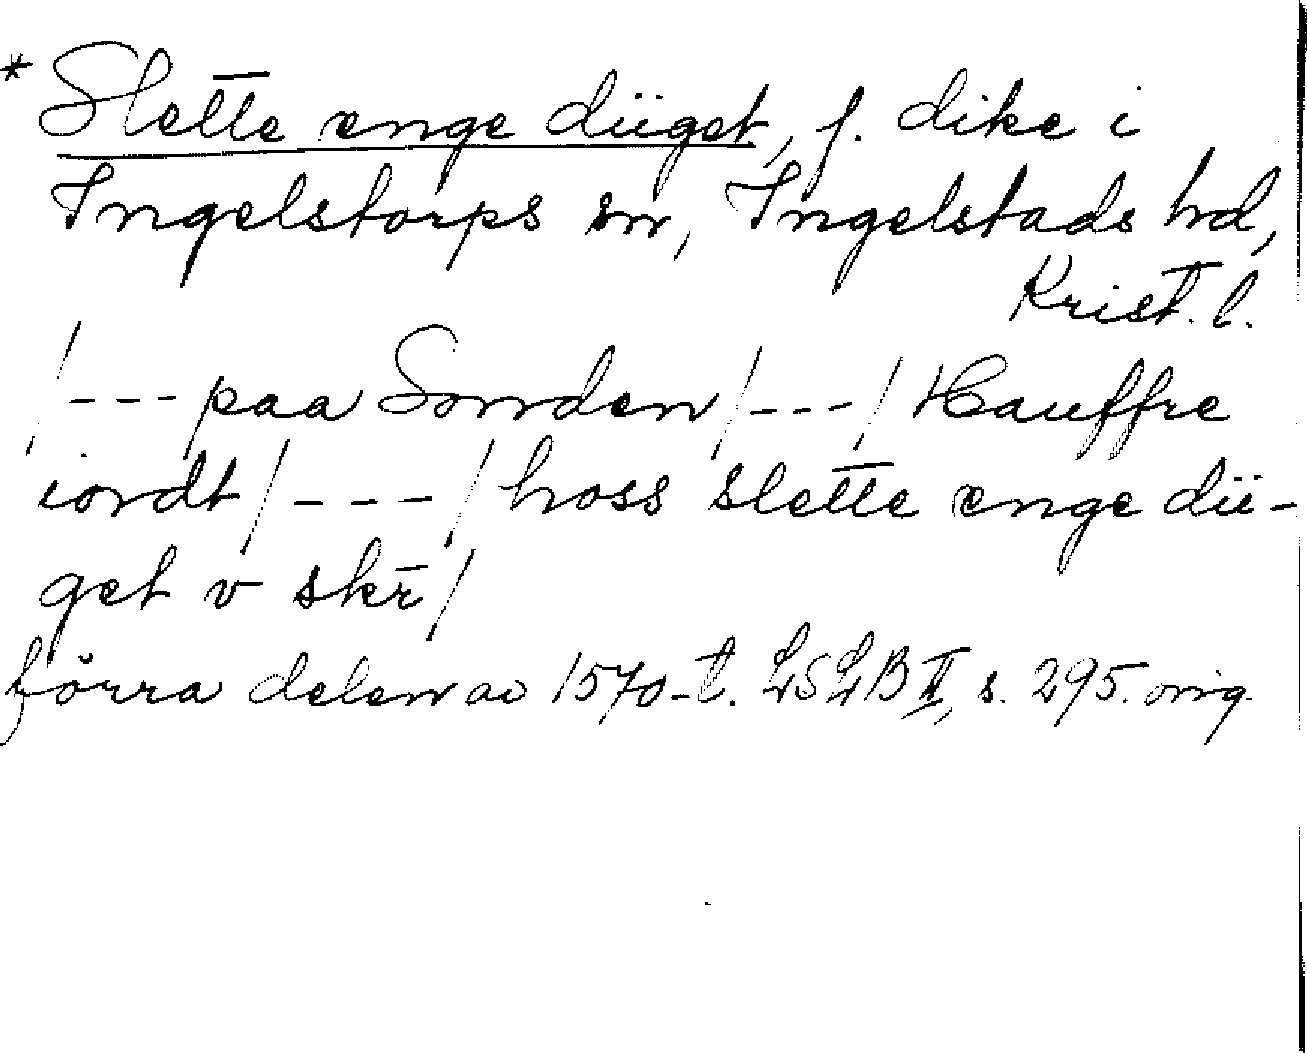 * Slette enge diiget, f. dike i
Ingelstorps sn, Ingelstads hd,
Krist. l.
/---paa Sonnden/---/Hauffre
iordt/---/hoss slette enge dii-
get v skr̄/
förra delen av 1570-t. LSLB II, s. 295. orig.